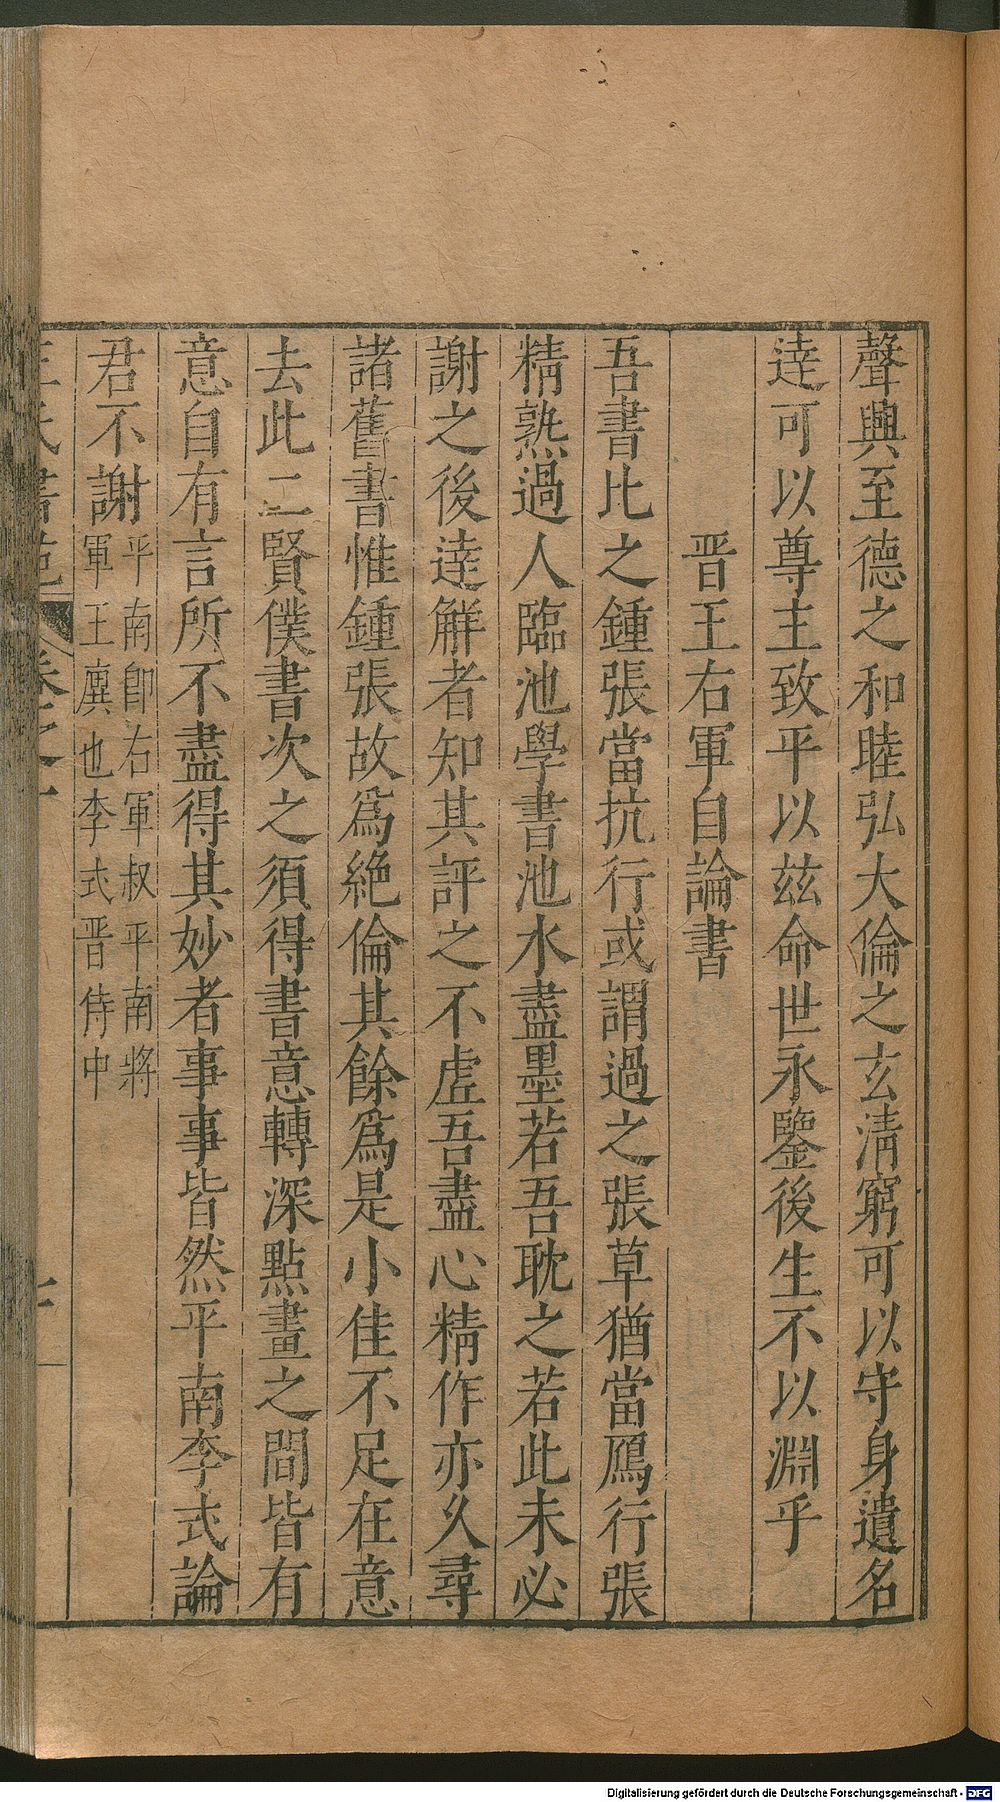 聲興至德之和睦弘大倫之玄清窮可以守身遺名
逹可以尊主致平以茲命世永鑒後生不以淵乎
晋王右軍自論書
吾書比之鍾張當抗行或謂過之張草猶當鴈行張
精熟過人臨池學書池水盡墨若吾耽之若此未必
謝之後逹解者知其評之不虛吾盡心精作亦乆尋
諸舊書惟鍾張故爲絶倫其餘爲是小佳不足在意
去此二賢僕書次之須得書意轉深點畫之間皆有
意自有言所不盡得其妙者事事皆然平南李式論
君不謝平南卽右軍叔平南將
軍王廙也李式晋侍中
王氏書苑 卷之一
Digitalisierung gefördert durch die Deutsche Forschungsgemeinschaft - DFG